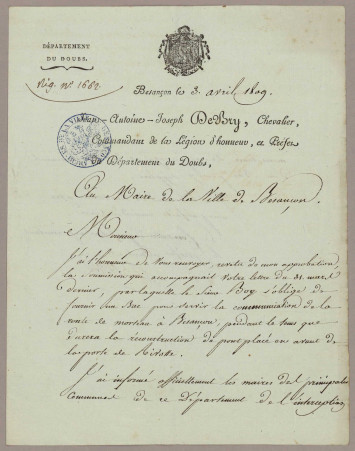 DÉPARTEMENT
DU DOUBS.
Rég. n° 1662
Besançon le 3. avril 1809.
Antoine-Joseph DeBry, Chevalier,
Commandant de la Légion d'honneur, et Préfet
du Département du Doubs,
Au Maire de la Ville de Besançon.
Monsieur
J'ai l'honneur de vous renvoyer, revêtue de mon approbation
la soumission qui accompagnait votre lettre du 31. mars
dernier, par laquelle le Sieur Boy s'oblige de
fournir un Bac pour servir la communication de la
route de à Besançon, pendant le tems que
durera la reconstruction du pont placé en avant de
la porte de
J'ai informé officiellement les maires des principales
Communes de ce Département de l'interception